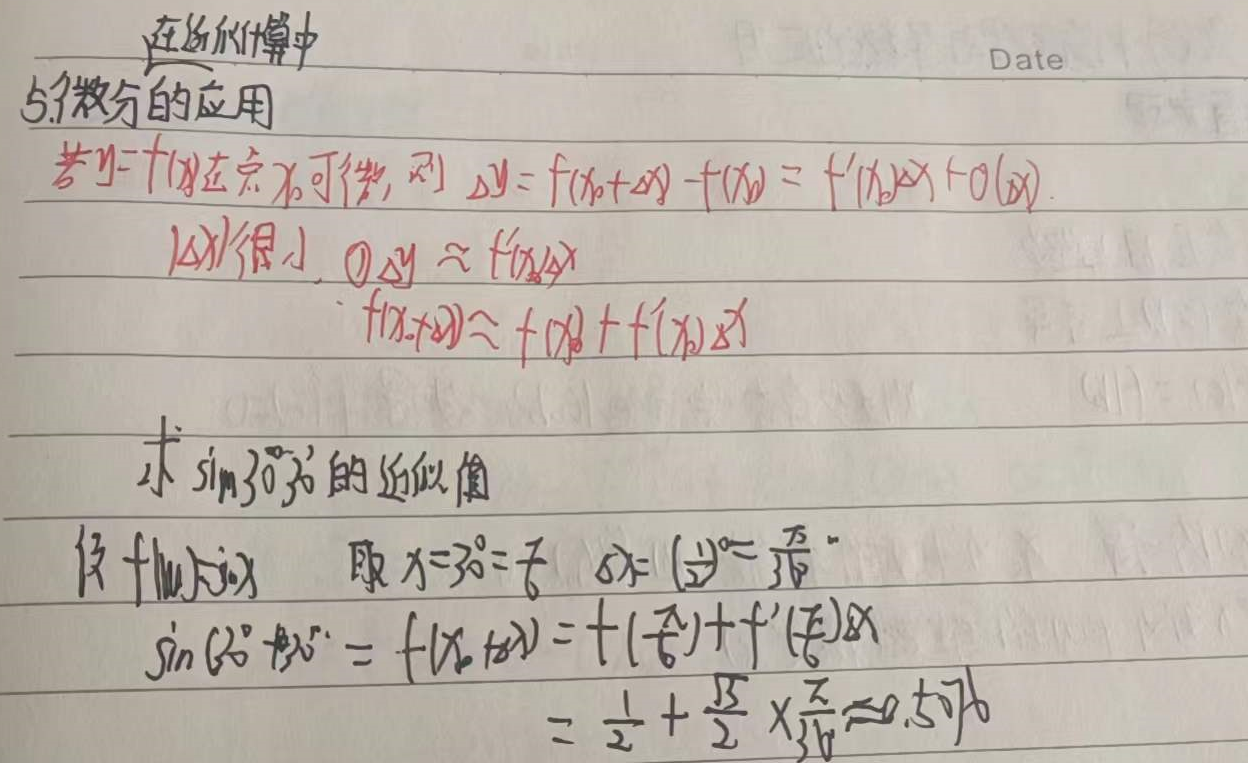 在近似计算中
Date
5.微分的应用
若y=f(x)在点x₀可微, 则 Δy=f(x₀+Δx)-f(x₀)=f'(x₀)Δx+o(Δx).
|Δx|很小, ①Δy≈f'(x₀)Δx
f(x₀+Δx)≈f(x₀)+f'(x₀)Δx
求 sin30°30'的近似值
设 f(x)=sinx 取 x=30°=π/6 Δx=(1/2)°=π/360
sin(30°+30')=f(x₀+Δx)=f(π/6)+f'(π/6)Δx
=1/2+√3/2×π/360≈0.5076